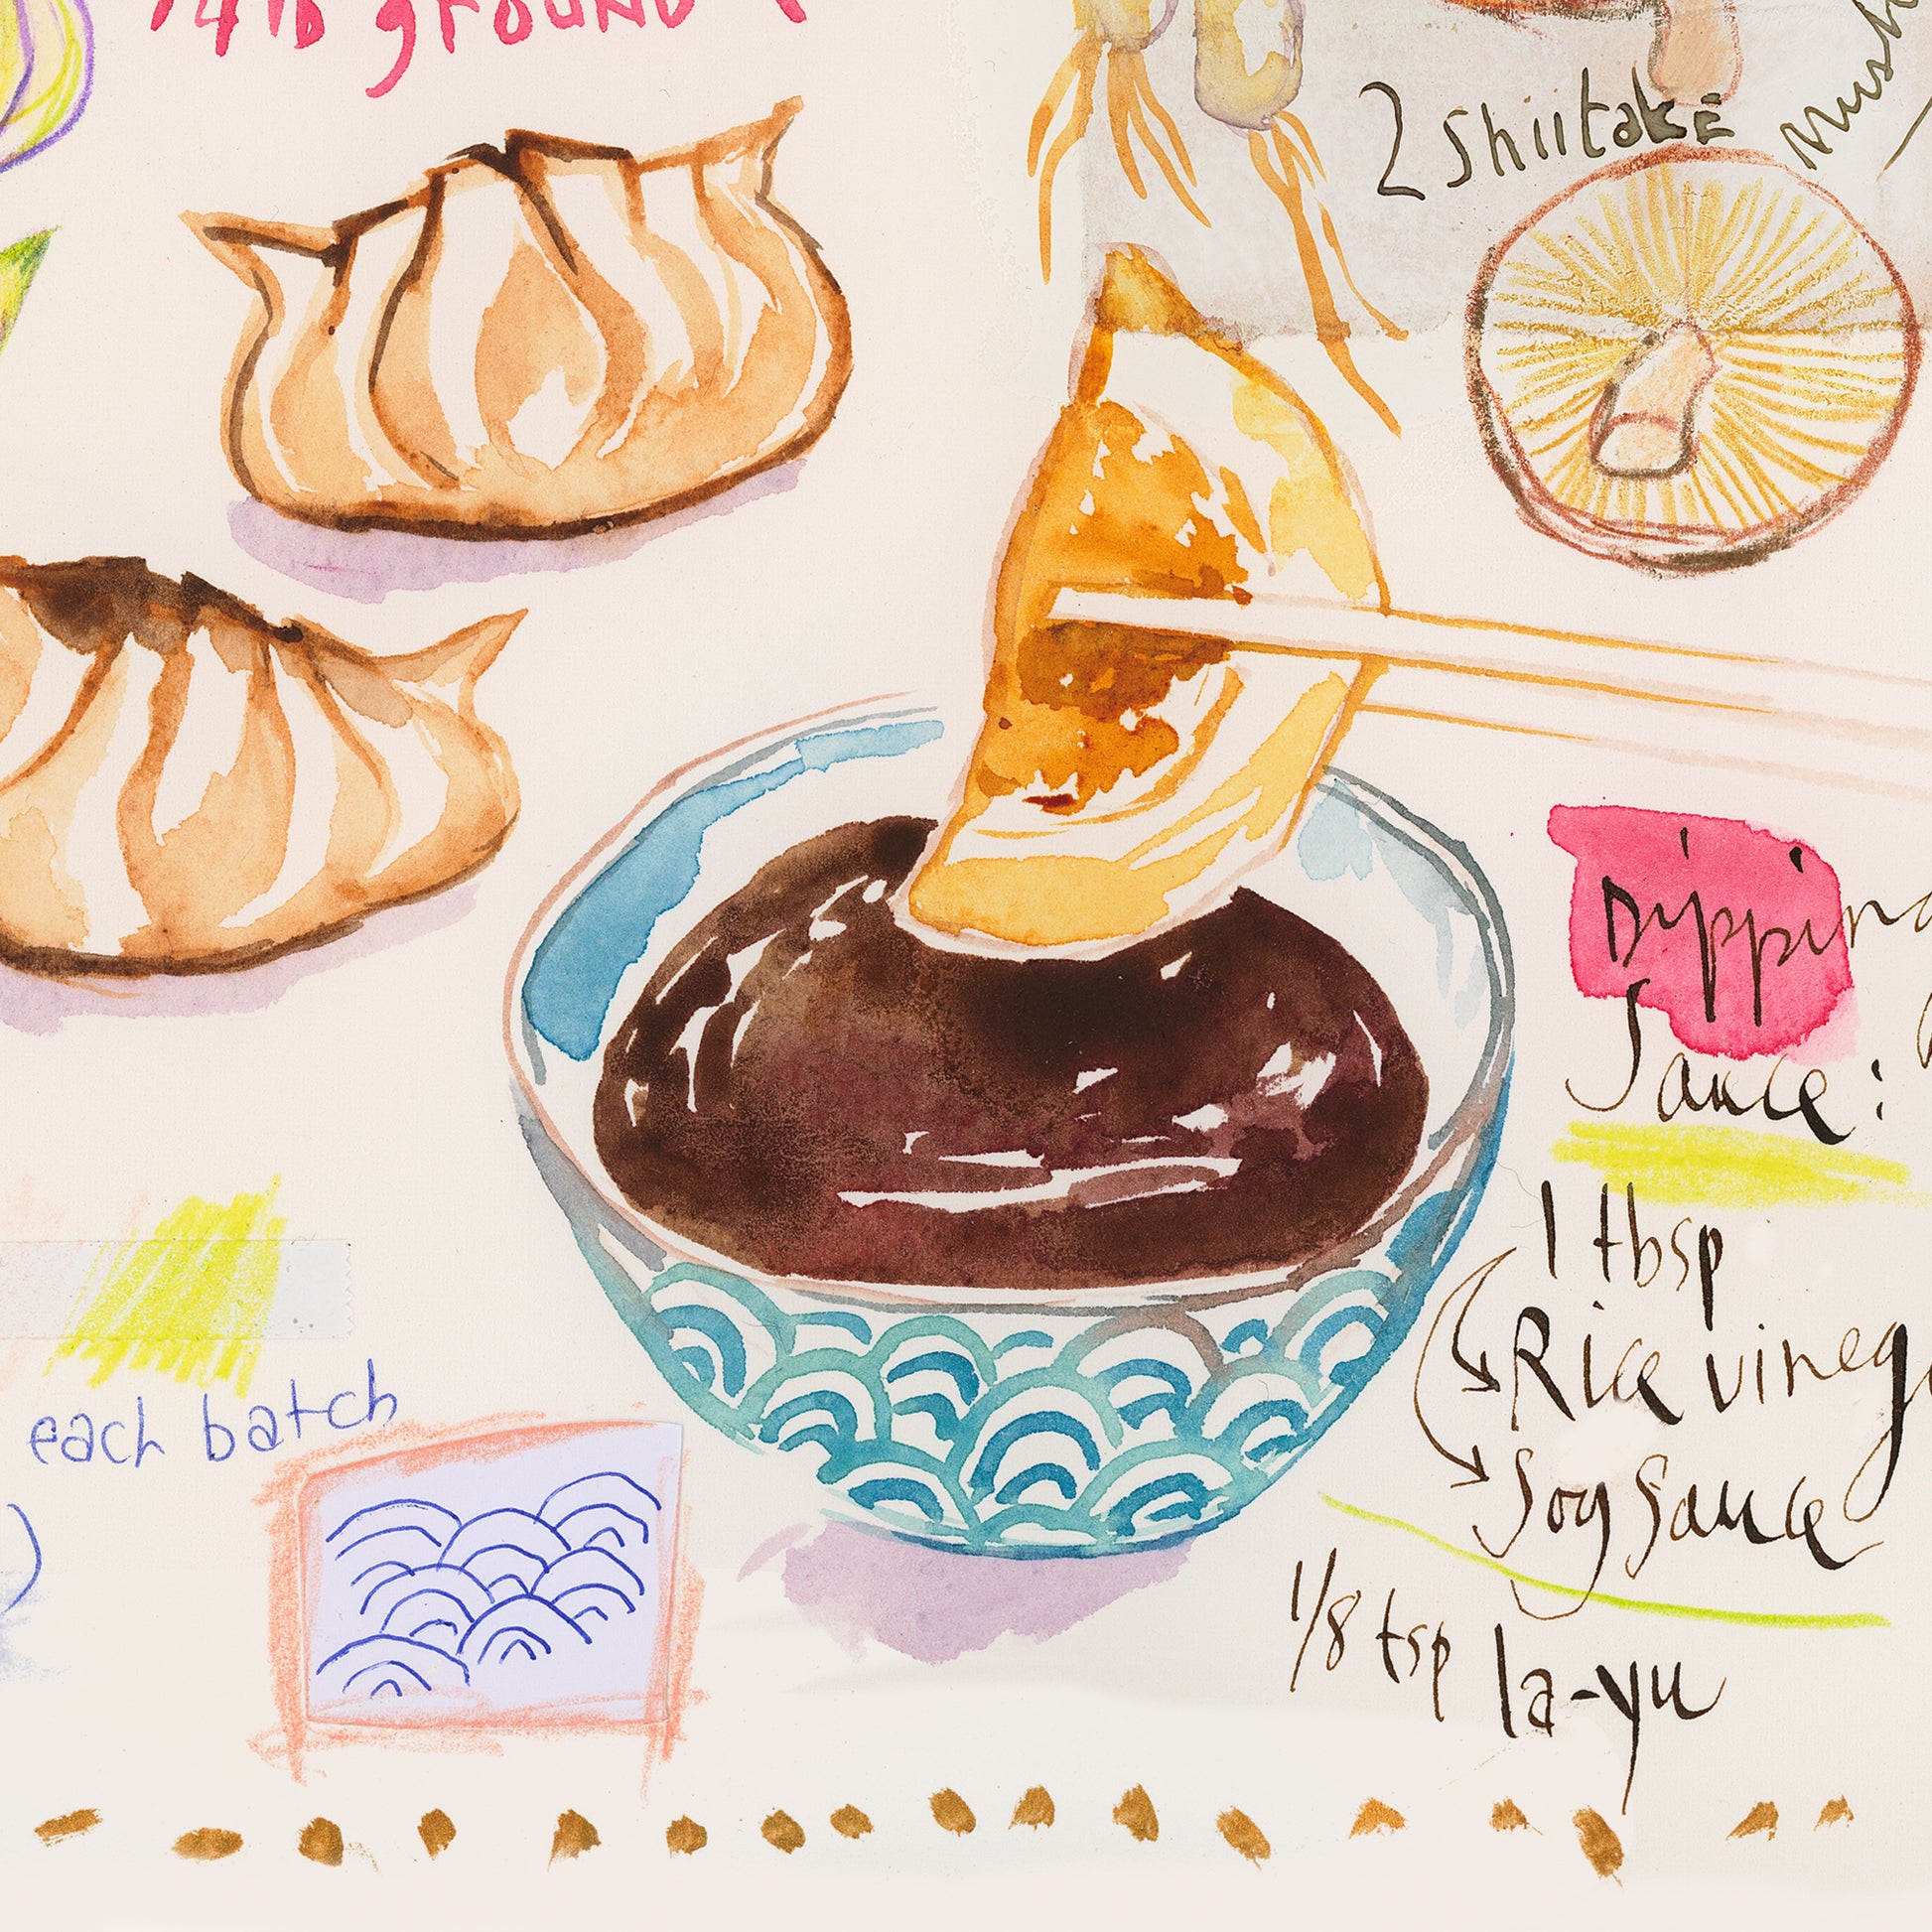 1/4 lb ground
2 shiitake
Dipping
Sauce:
1 tbsp
Rice vineg
Soy sauce
1/8 tsp la-yu
each batch
)